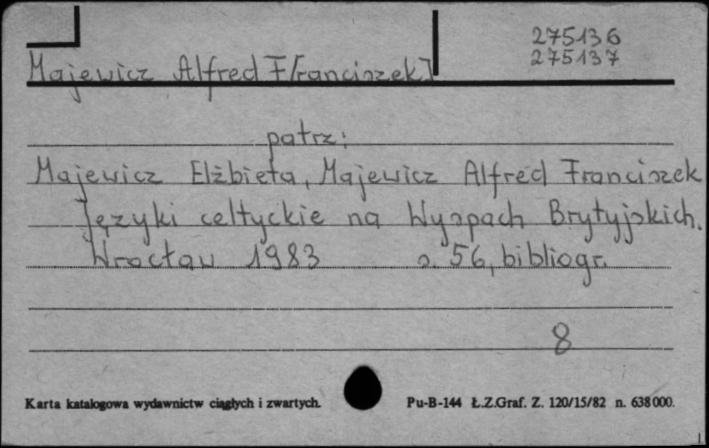 275136
275137
Majewicz Alfred F[ranciszek]
patrz:
Majewicz Elżbieta, Majewicz Alfred Franciszek
Języki celtyckie na Wyspach Brytyjskich.
Wrocław 1983 s. 56, bibliogr.
8
Karta katalogowa wydawnictw ciągłych i zwartych.
Pu-B-144 Ł.Z.Graf. Z. 120/15/82 n. 638000.